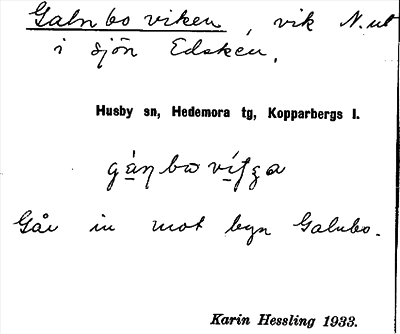 Galnboviken, vik N. ut
i sjön Edsken.
Husby sn, Hedemora tg, Kopparbergs l.
Går in mot byn Galnbo.
Karin Hessling 1933.